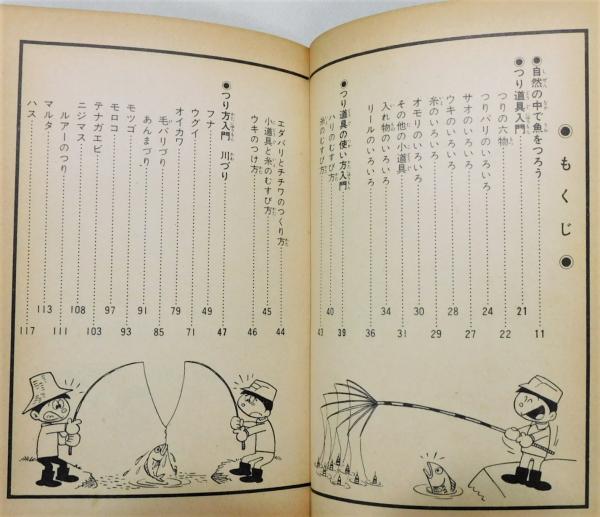 ◉もくじ◉
◉自然の中で魚をつろう……11
◉つり道具入門……21
つりの六物……22
つりバリのいろいろ……24
サオのいろいろ……27
ウキのいろいろ……28
糸のいろいろ……29
オモリのいろいろ……30
その他の小道具……31
入れ物のいろいろ……34
リールのいろいろ……36
◉つり道具の使い方入門……39
ハリのむすび方……40
糸のむすび方……43
エダバリとチチワのつくり方……44
小道具と糸のむすび方……45
ウキのつけ方……46
◉つり方入門 川づり……47
フナ……49
ウグイ……71
オイカワ……79
毛バリづり……85
あんまづり……91
モツゴ……93
モロコ……97
テナガエビ……103
ニジマス……108
ルアーのつり……111
マルタ……113
ハス……117